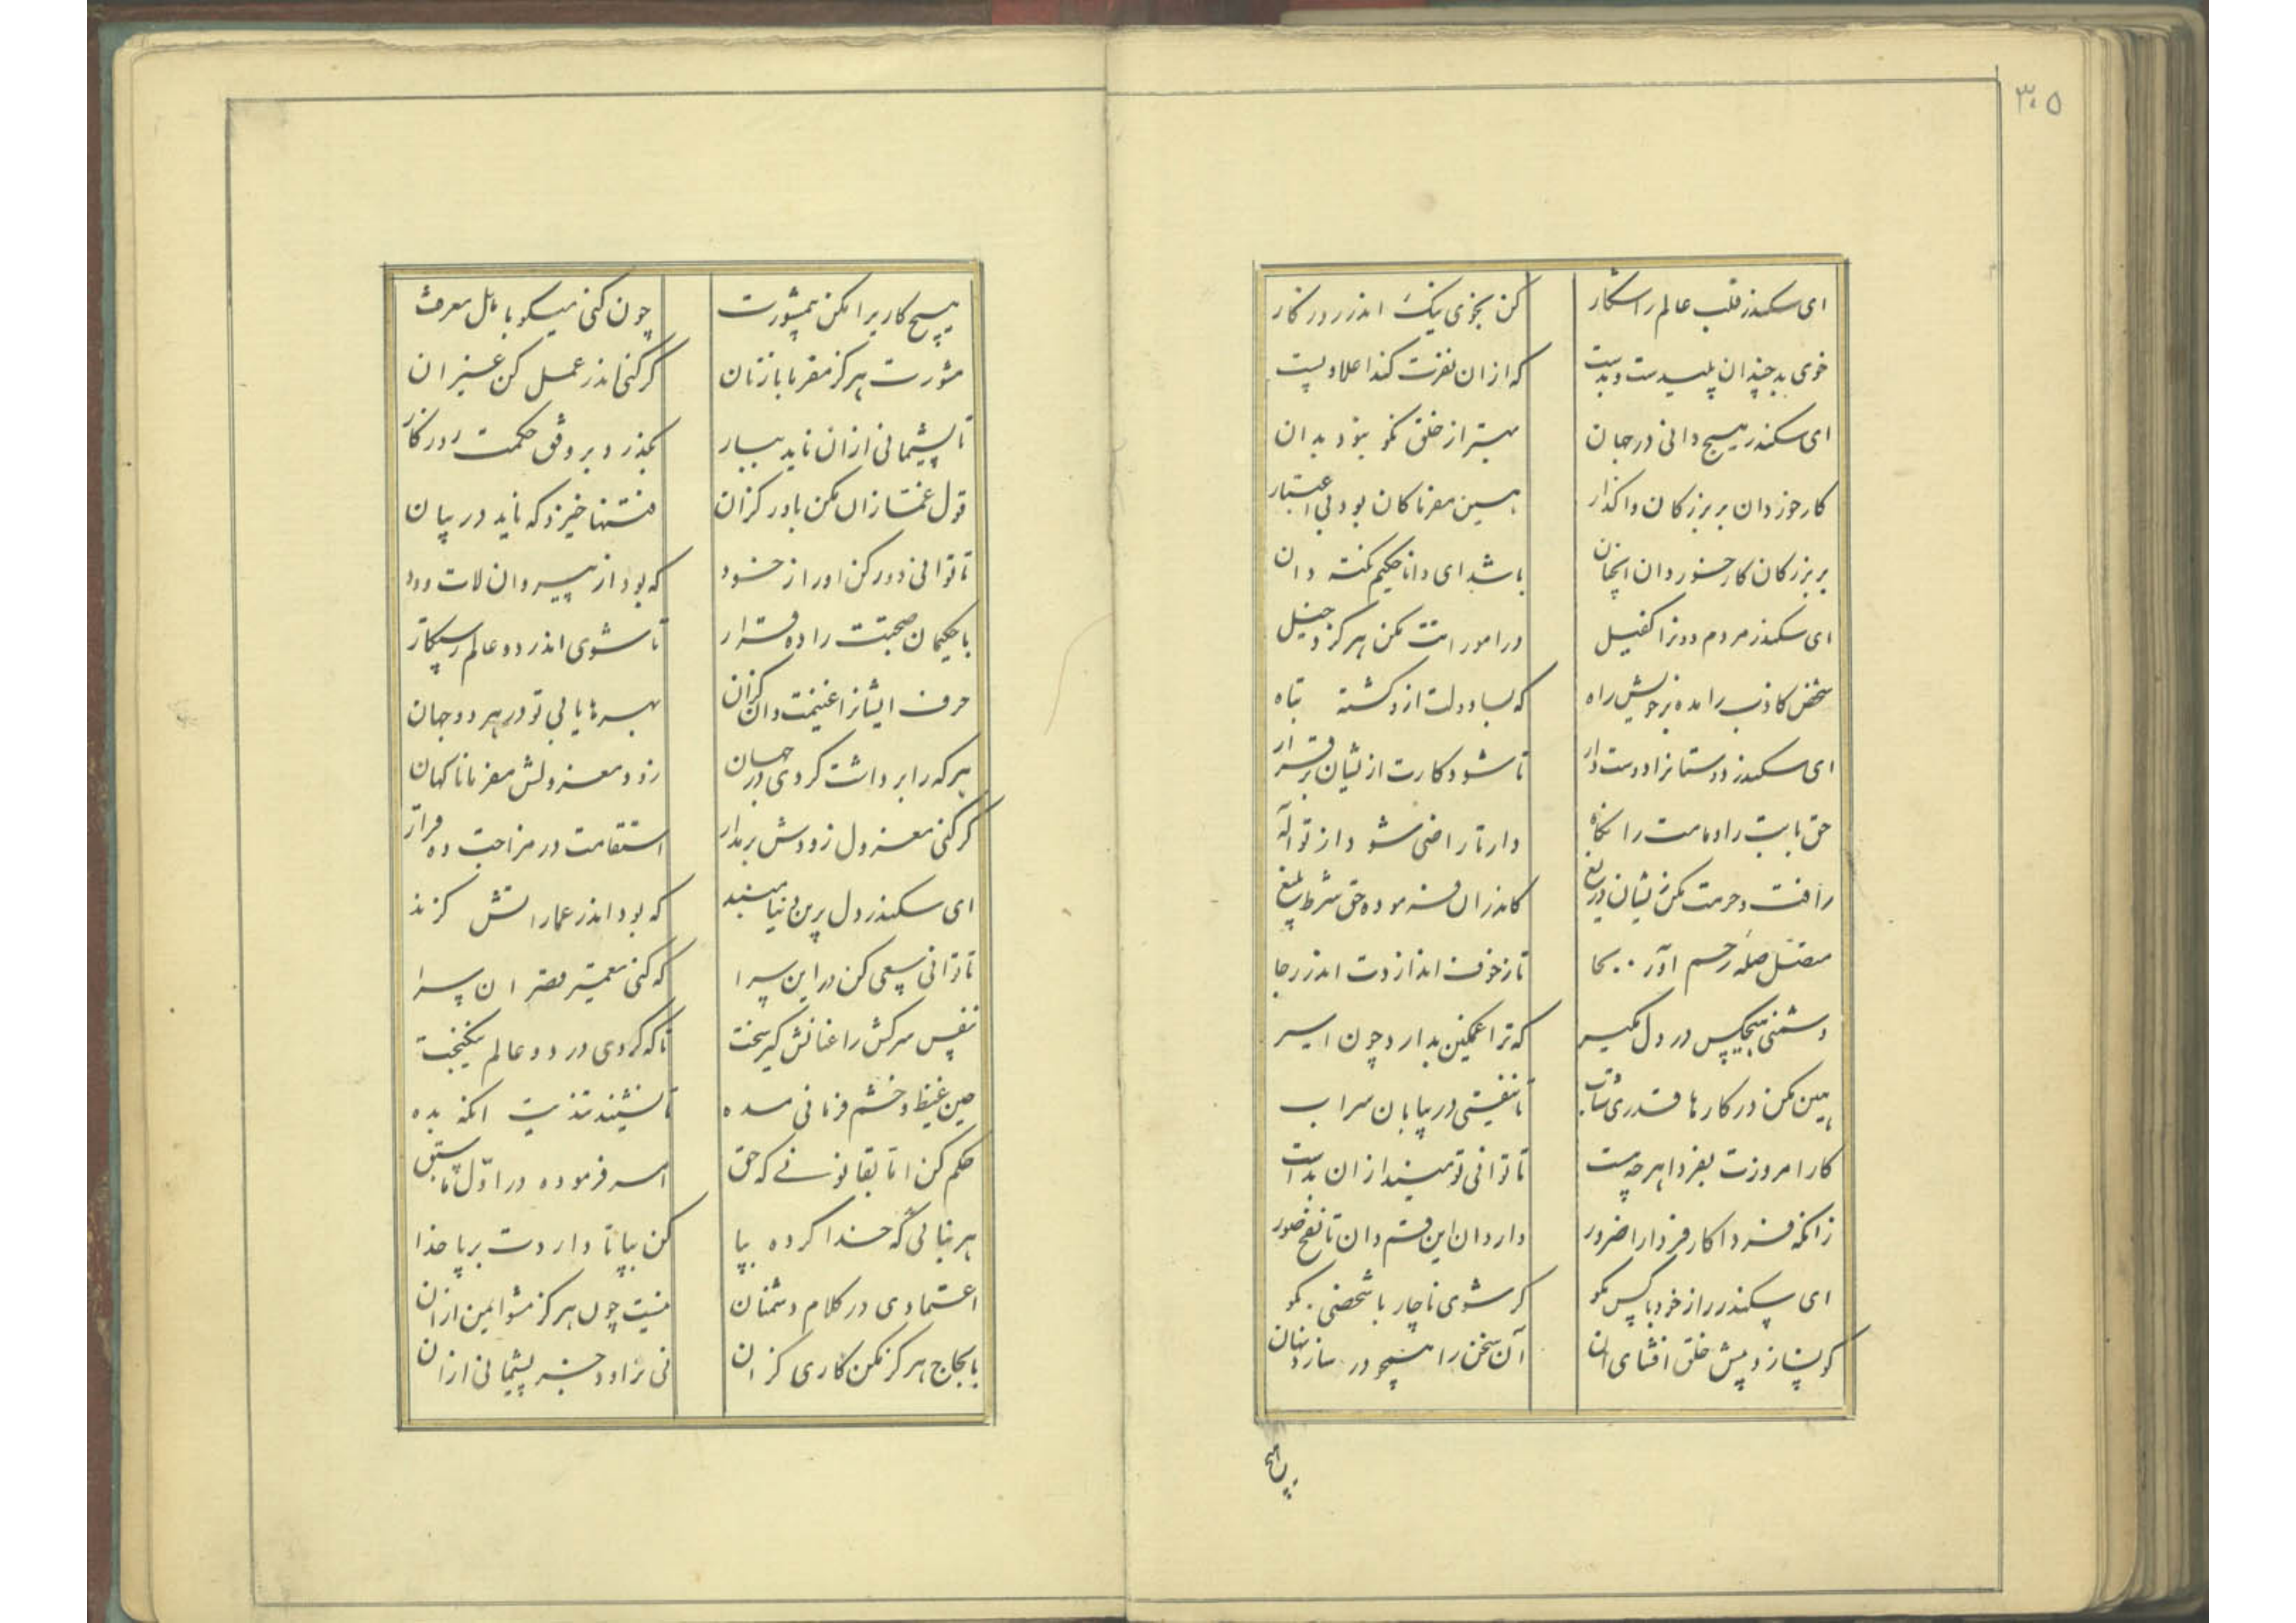 ۳۰۵
ای سکندر قلب عالم را شکار کن بخوی نیک اندر روزکار
خوی بد چندان پلیدست و بدست که ازان نفرت کند اعلا و پست
ای سکندر هیچ دانی در جهان بهتر از خلق نکو نبود بدان
کار خوردان بر بزرکان واکذار هین مفرما کان بود بی اعتبار
بر بزرکان کار خوردان انچنان باشد ای دانا حکیم نکته دان
ای سکندر مردم دون را کفیل در امورانت مکن هرکز دخیل
شخص کاذب را مده بر خویش راه که بسا دولت ازو کشته تباه
ای سکندر دوستانرا دوست دار تا شود کارت ازیشان برقرار
حق بابت را و مامت را نکاه دار تا راضی شود از تو اله
رأفت و حرمت مکن زیشان دریغ کاندران فرموده حق شرط بلیغ
متصل صله رحم آور بجا تا ز خوف اندازدت اندر رجا
دشمنی هیچکس در دل مکیر که ترا غمکین بدارد چون اسیر
هین مکن در کارها قدری شتاب تا نیفتی در بیابان سراب
کار امروزت بفردا هرچه هست تا توانی تو میندازان بدست
زانکه فردا کار فردا را ضرور دارد ان این قسم دان تا نفخ صور
ای سکندر راز خود با کس مکو کر شوی ناچار با شخصی بکو
کو نسازد پیش خلق افشای ان آن سخن را همچو در سازد نهان
هیچ
هیچ کاریرا مکن بیمشورت چون کنی میکو با اهل معرفت
مشورت هرکز مفرما با زنان کر کنی اندر عمل کن غیر ان
تا پشیمانی ازان ناید ببار بکذرد بر وفق حکمت روزکار
قول غمازان مکن باور کزان فتنها خیزد که ناید در بیان
تا توانی دور کن او را ز خود که بود از پیروان لات و ود
با حکیمان صحبتت را ده قرار تا شوی اندر دو عالم رستکار
حرف ایشانرا غنیمت دان کزان بهرها یابی تو در هر دو جهان
هر که را برداشت کردی در جهان زود معزولش مفرما ناکهان
کر کنی معزول زودش بر مدار استقامت در مزاجت ده قرار
ای سکندر دل برین دنیا مبند که بود اندر عماراتش کزند
تا توانی سعی کن در این سرا که کنی تعمیر قصر ان سرا
نفس سرکش را عنانش کیر سخت تا که کردی در دو عالم نیکبخت
حین غیظ و خشم فرمانی مده تا نشیند تندیت انکه بده
حکم کن اما بقانونی که حق امر فرموده در اول ما سبق
هر بنائی که خدا کرده بپا کن بپا تا داردت برپا خدا
اعتمادی در کلام دشمنان نیست چون هرکز مشو ایمن ازان
با لجاج هرکز مکن کاری کزان نی نزاود جز پشیمانی ازان